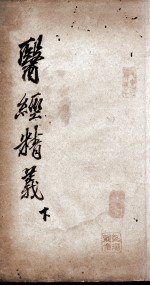 醫經精義下